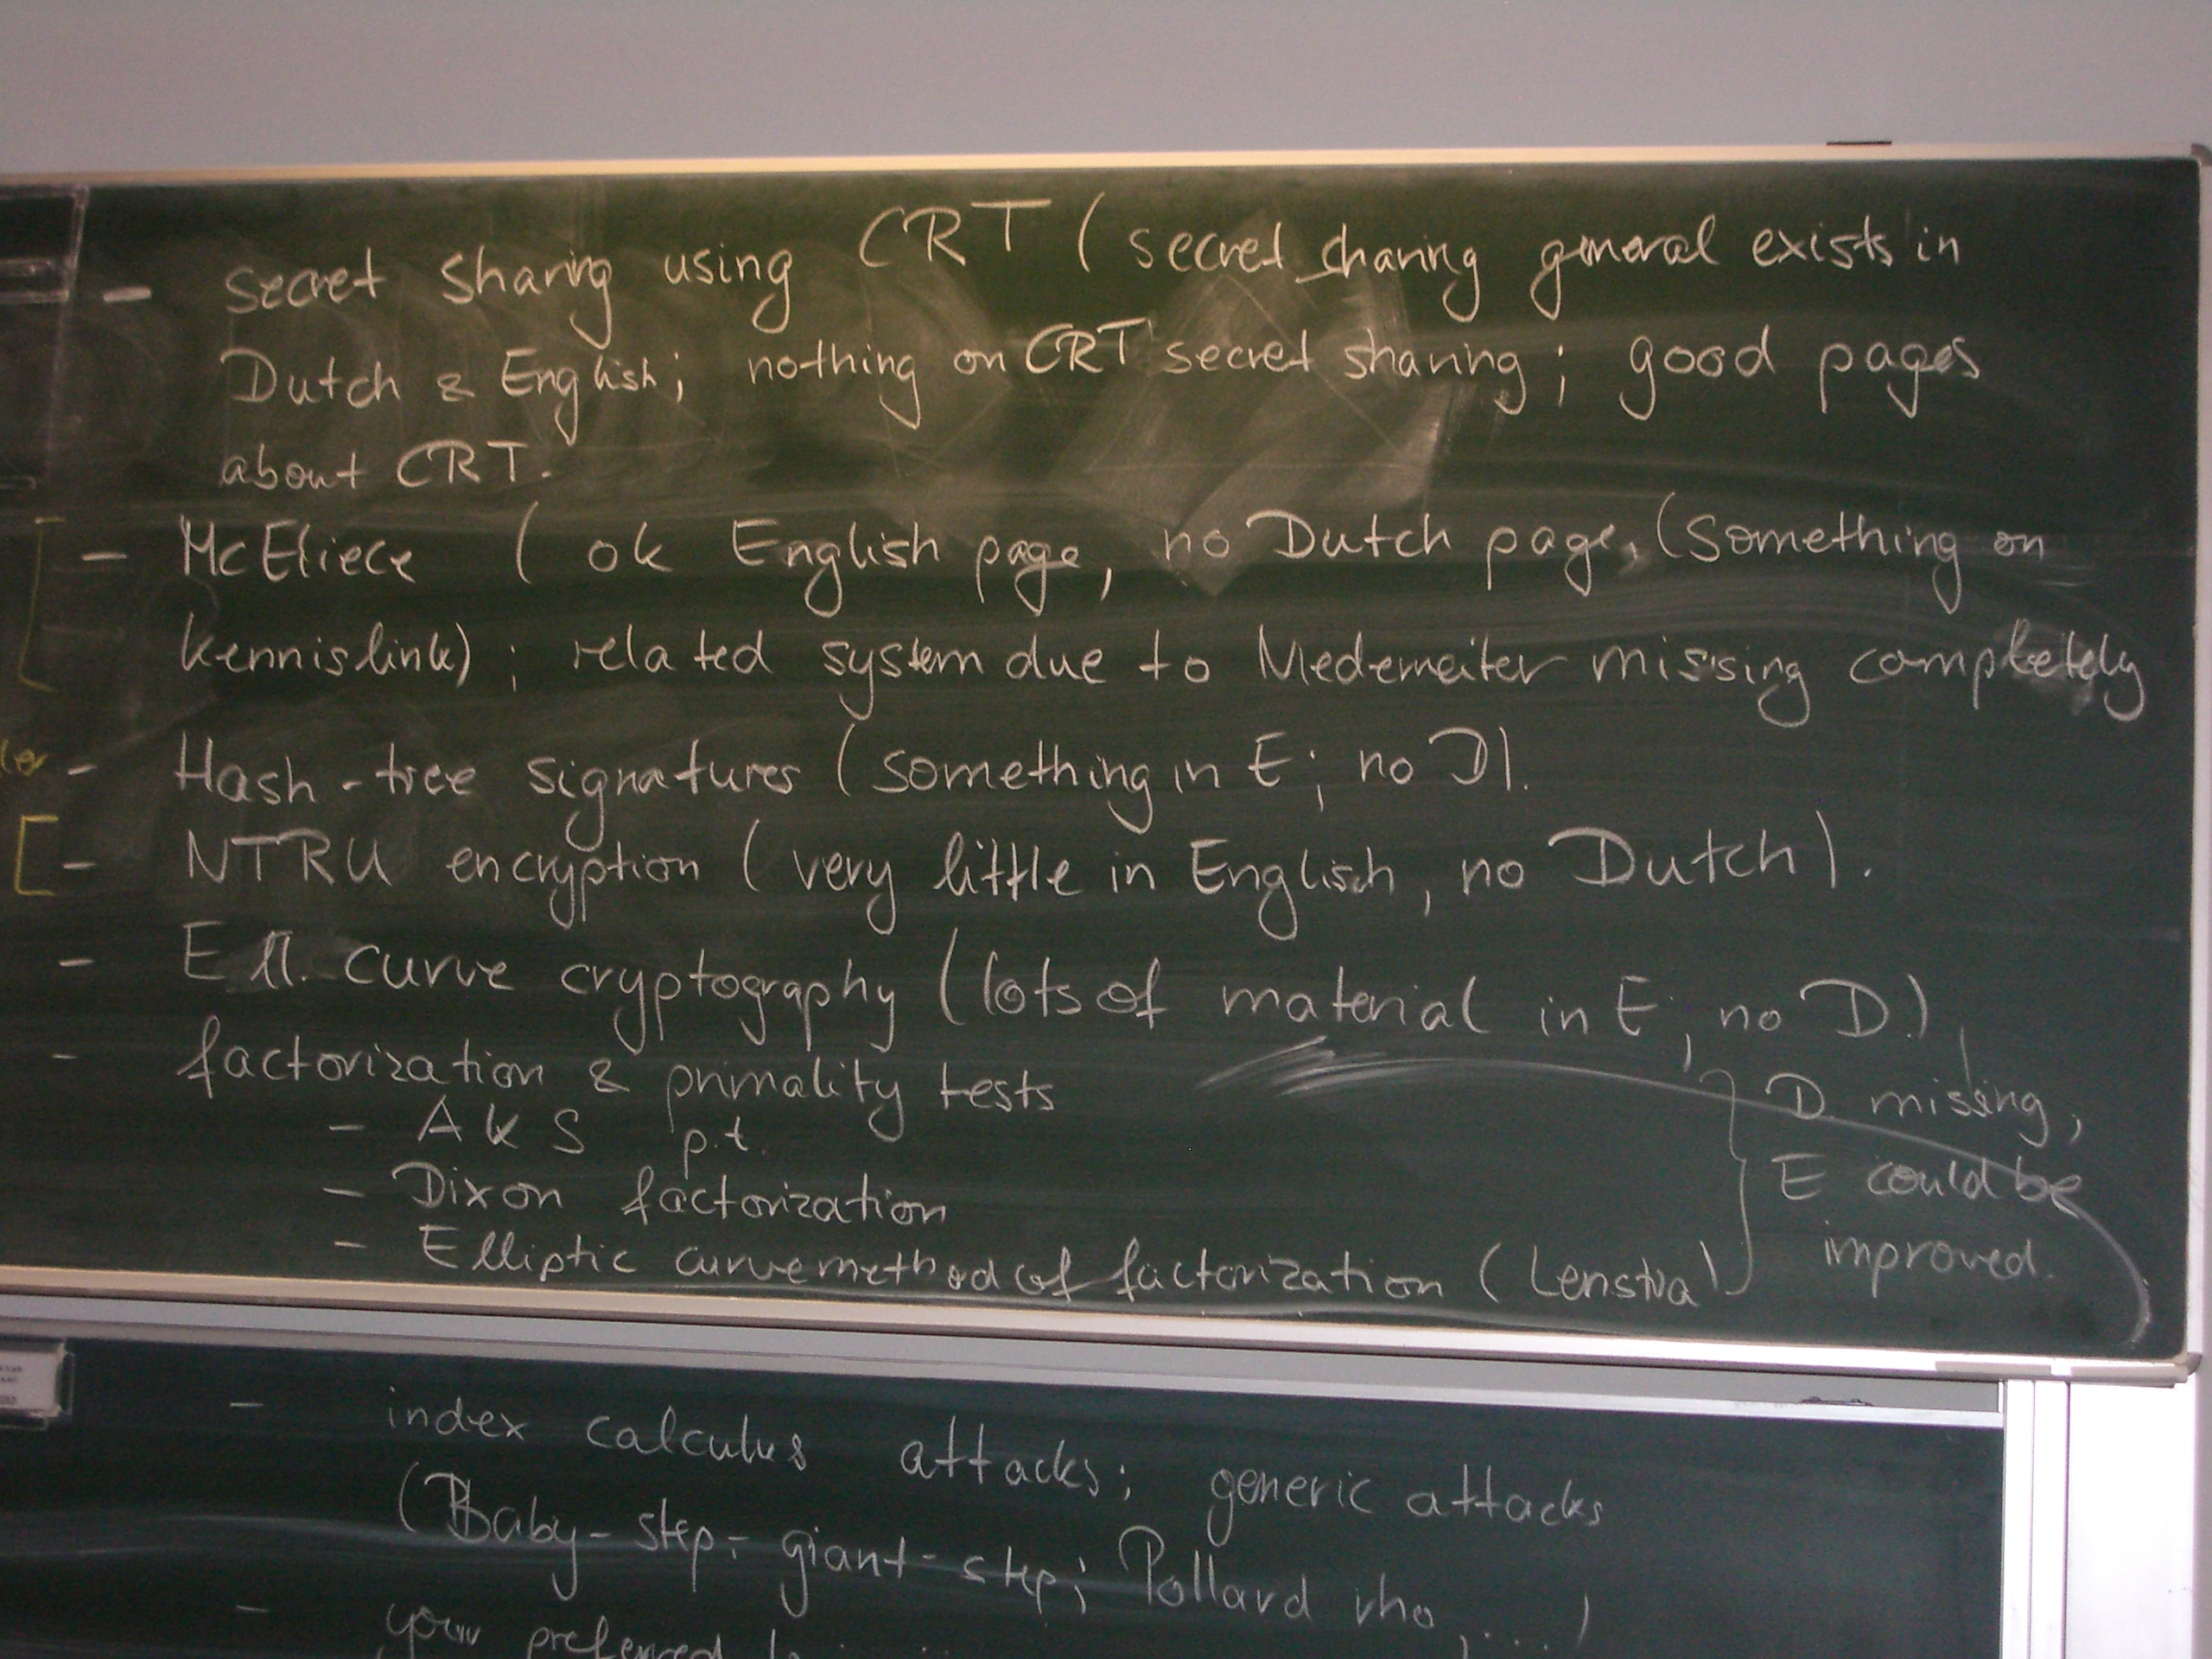 - secret sharing using CRT (secret sharing general exists in
Dutch & English; nothing on CRT secret sharing; good pages
about CRT.
- McEliece (ok English page, no Dutch page, (something on
kennislink); related system due to Niederreiter missing completely
- Hash-tree signatures (something in E; no D).
- NTRU encryption (very little in English, no Dutch).
- Ell. curve cryptography (lots of material in E, no D.)
- factorization & primality tests
- AKS p.t.
- Dixon factorization
- Elliptic curve method of factorization (Lenstra)
D missing,
E could be
improved.
- index calculus attacks; generic attacks
(Baby-step-giant-step; Pollard rho, ....)
- your preferred